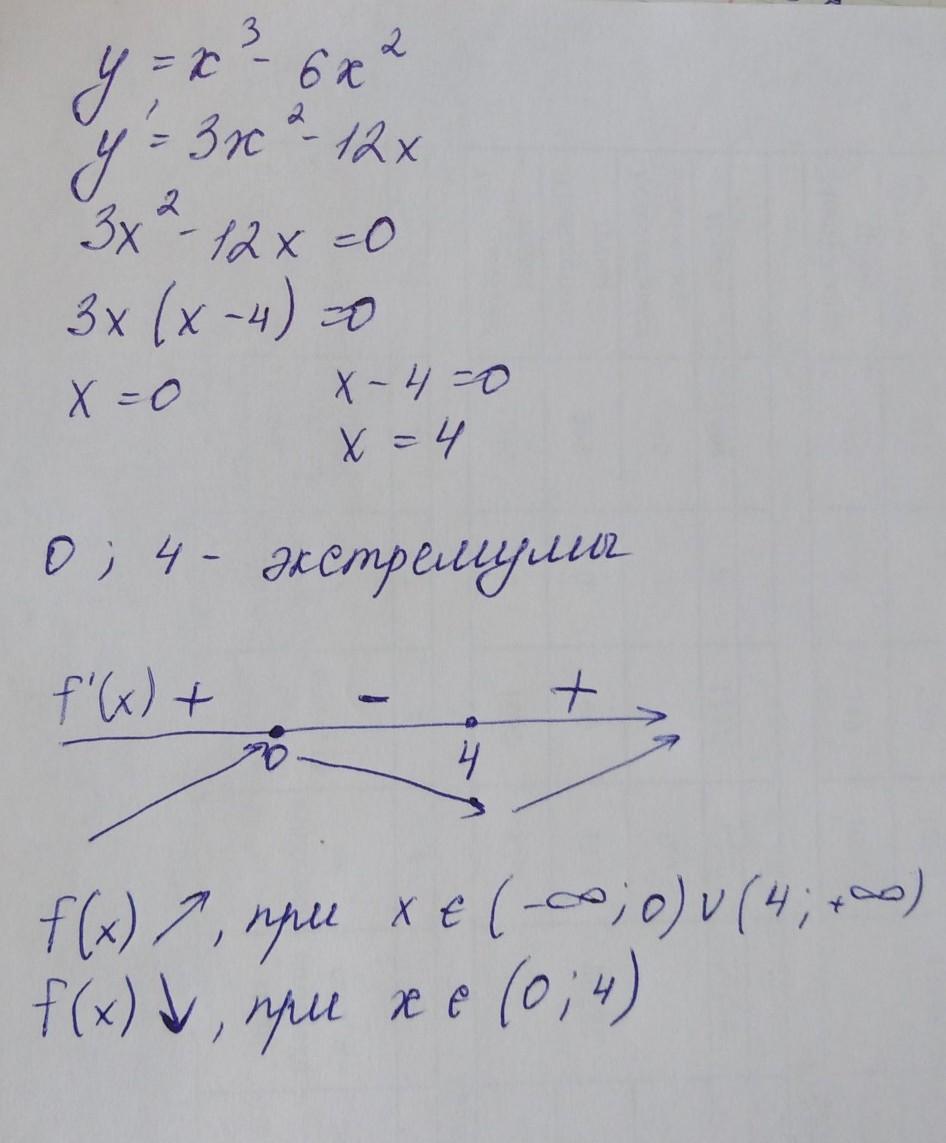 y = x³ - 6x²
y' = 3x² - 12x
3x² - 12x = 0
3x (x - 4) = 0
x = 0 x - 4 = 0
x = 4
0 ; 4 - экстремумы
f'(x) + - +
0 4
f(x) ↗, при x ∈ (-∞; 0) ∪ (4; +∞)
f(x) ↘, при x ∈ (0; 4)